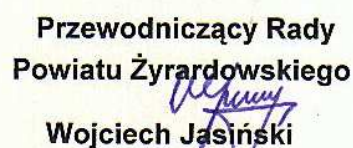 Przewodniczący Rady
Powiatu Żyrardowskiego
Wojciech Jasiński